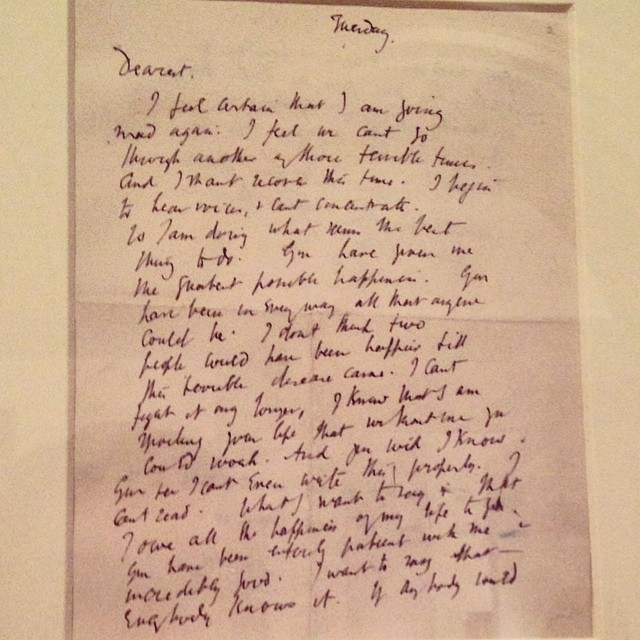 Tuesday.
Dearest,
I feel certain that I am going
mad again. I feel we cant go
through another of those terrible times.
And I shant recover this time. I begin
to hear voices, & cant concentrate.
So I am doing what seems the best
thing to do. You have given me
the greatest possible happiness. You
have been in every way all that anyone
could be. I dont think two
people could have been happier till
this terrible disease came. I cant
fight it any longer, I know that I am
spoiling your life, that without me you
could work. And you will I know.
You see I cant even write this properly. I
cant read. What I want to say is that
I owe all the happiness of my life to you.
You have been entirely patient with me &
incredibly good. I want to say that —
everybody knows it. If anybody could